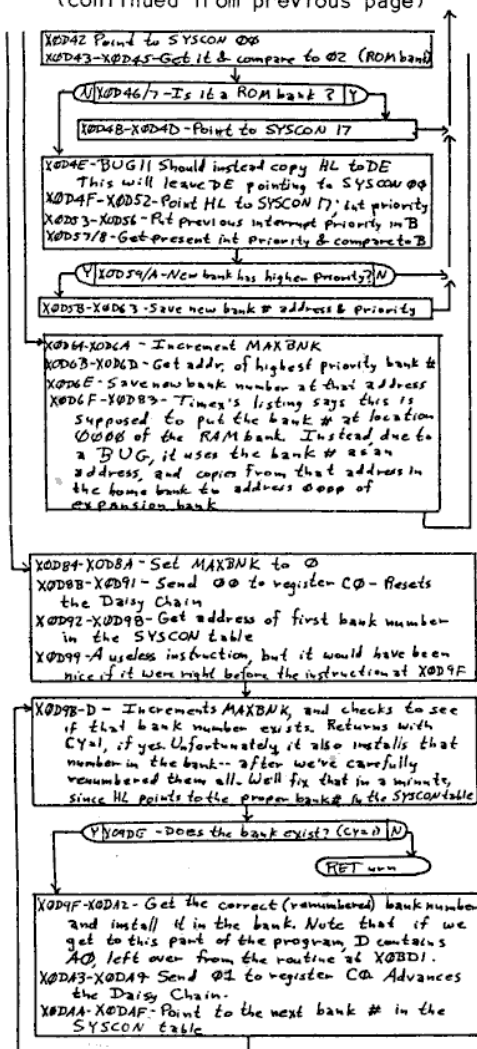 (continued from previous page)
XØD42 Point to SYSCON ØØ
XØD43-XØD45-Get it & compare to Ø2 (ROM bank)
N XØD46/7-Is it a ROM bank? Y
XØD4B-XØD4D-Point to SYSCON 17
XØD4E-BUG!! Should instead copy HL to DE
This will leave DE pointing to SYSCON ØØ
XØD4F-XØD52-Point HL to SYSCON 17; int priority
XØD53-XØD56-Put previous interrupt priority in B
XØD57/8-Get present int priority & compare to B
Y XØD59/A-New bank has higher priority? N
XØD5B-XØD63-Save new bank # address & priority
XØD64-XØD6A - Increment MAXBNK
XØD6B-XØD6D-Get addr. of highest priority bank #
XØD6E-Save new bank number at that address
XØD6F-XØD83-Timex's listing says this is
supposed to put the bank # at location
ØØØØ of the RAM bank. Instead, due to
a BUG, it uses the bank # as an
address, and copies from that address in
the home bank to address ØØØØ of
expansion bank
XØD84-XØD8A-Set MAXBNK to Ø
XØD8B-XØD91-Send ØØ to register CØ-Resets
the Daisy Chain
XØD92-XØD98-Get address of first bank number
in the SYSCON table
XØD99-A useless instruction, but it would have been
nice if it were right before the instruction at XØD9F
XØD9B-D - Increments MAXBNK, and checks to see
if that bank number exists. Returns with
CY=1, if yes. Unfortunately it also installs that
number in the bank-- after we've carefully
renumbered them all. We'll fix that in a minute,
since HL points to the proper bank# in the SYSCON table
Y XØ9DE-Does the bank exist? (CY=1) N
RETurn
XØD9F-XØDA2-Get the correct (renumbered) bank number
and install it in the bank. Note that if we
get to this part of the program, D contains
AØ, left over from the routine at XØBD1.
XØDA3-XØDA9 Send Ø1 to register CØ. Advances
the Daisy Chain.
XØDAA-XØDAF-Point to the next bank # in the
SYSCON table